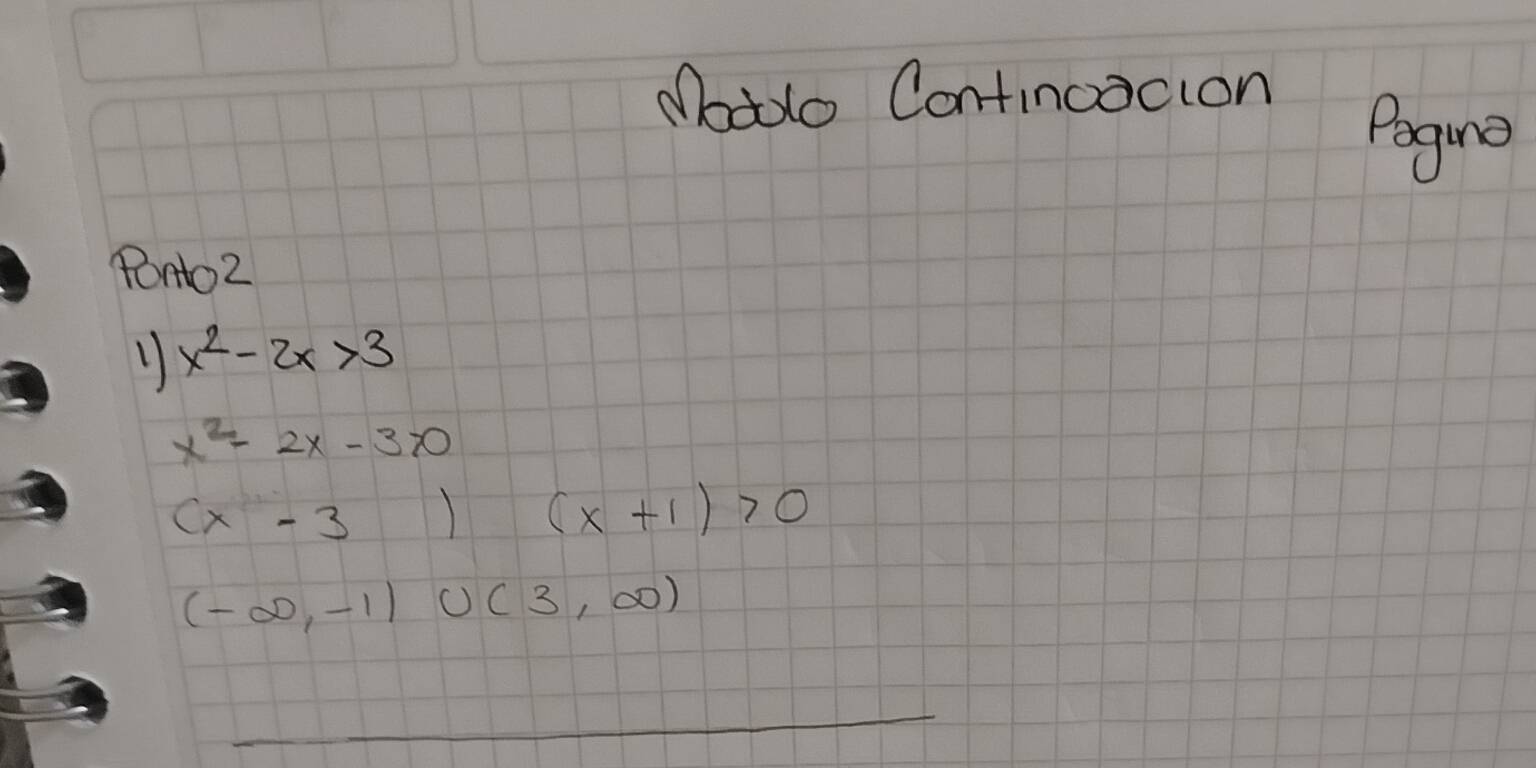 Modulo Continuacion
Pagina
Punto 2
1) x² - 2x > 3
x² - 2x - 3 > 0
(x - 3 ) (x + 1) > 0
(-∞, -1) ∪ (3, ∞)